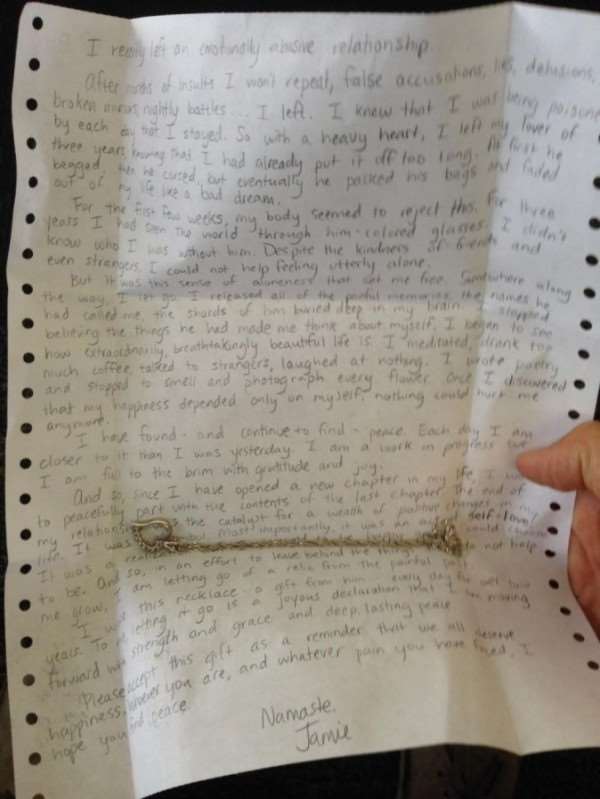 I recently left an emotionally abusive relationship.
After months of insults I won't repeat, false accusations, lies, delusions,
broken mirrors, nightly battles... I left. I knew that I was being poisoned
by each day that I stayed. So with a heavy heart, I left my lover of
three years knowing that I had already put it off too long. At first he
begged, then he cursed, but eventually he packed his bags and faded
out of my life like a bad dream.
For the first few weeks, my body seemed to reject this. For three
years I had seen the world through him-colored glasses. I didn't
know who I was without him. Despite the kindness of friends and
even strangers, I could not help feeling utterly alone.
But it was this sense of aloneness that set me free. Somewhere along
the way, I let go. I released all of the painful memories, the names he
had called me, the shards of him buried deep in my brain. I stopped
believing the things he had made me think about myself. I began to see
how extraordinarily, breathtakingly beautiful life is. I meditated, drank too
much coffee, talked to strangers, laughed at nothing. I wrote poetry
and stopped to smell and photograph every flower. Once I discovered
that my happiness depended only on myself, nothing could hurt me
anymore.
I have found - and continue to find - peace. Each day I am
closer to it than I was yesterday. I am a work in progress but
I am full to the brim with gratitude and joy.
And so, since I have opened a new chapter in my life, I
to peacefully part with the contents of the last chapter. The end of
my relationship was the catalyst for a wealth of positive changes in my
life. It was most importantly, it was an act self-love!
It was a could choose
to be. And so, in an effort to leave behind the things do not help
me glow, I am letting go of a relic from the painful past.
I wore this necklace - a gift from him - every day for well over
years. To me letting it go is a joyous declaration that I am moving
forward with strength and grace and deep, lasting peace.
Please accept this gift as a reminder that we all deserve
happiness. Whoever you are, and whatever pain you have faced, I
hope you find peace.
Namaste.
Jamie